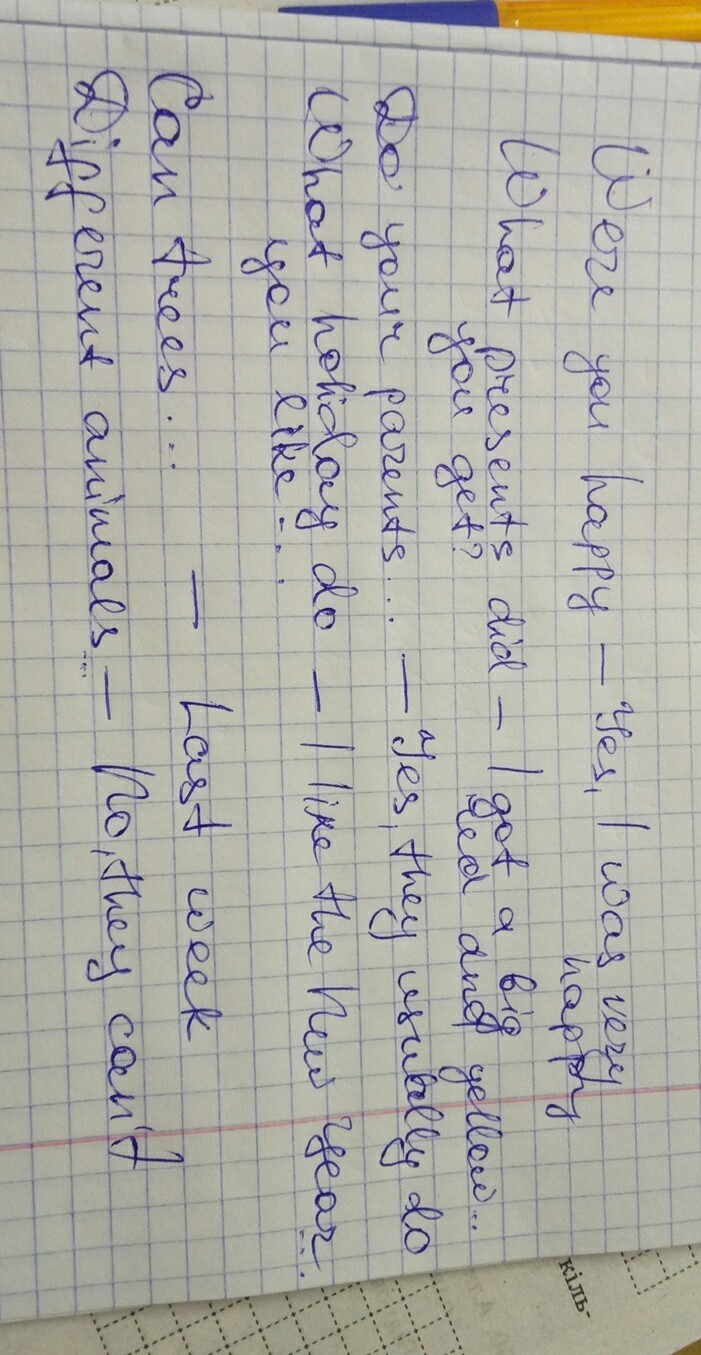 Were you happy – Yes, I was very
happy
What presents did – I got a big
you get? red and yellow...
Do your parents... – Yes, they usually do
What holiday do – I like the New Year...
you like...
Can trees... – Last week
Different animals... – No, they can't
кіль-